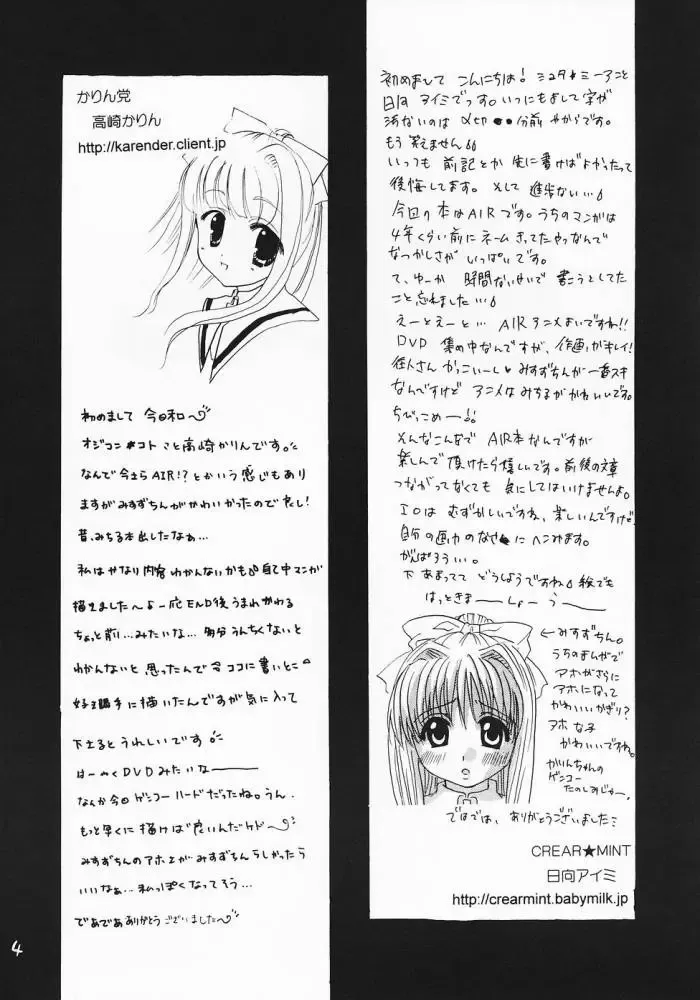 かりん党
高崎かりん
http://karender.client.jp
初めまして 今日和
オジコン★コトこと高崎かりんです。
なんで今さらAIR!?とかいう感じもあり
ますがみすずちんがかわいかったので良し!
昔、みちる本出したなぁ…
私はかなり内容わかんないかも 自己中マンガ
描きました〜 一応END後うまれかわる
ちょっと前…みたいな… 多分うんちくないと
わかんないと思ったんで今ココに書いとこ
好き勝手に描いたんですが気に入って
下さるとうれしいです。
はーやくDVDみたいなーー
なんか今回ゲンコーハードだったね。うん.
もっと早くに描けば良いんだケド
みすずちんのアホさがみすずちんらしかったら
いいなぁ…私っぽくなってそう…
であであありがとうございました〜
初めまして こんにちは! ミュタ★ミーアこと
日向 アイミでっす。いつにもまして字が
汚ないのは〆切 分前 やからです。
もう 笑えません
いっつも 前記とか 先に書けばよかったって
後悔してます。そして 進歩ない…
今回の本はAIRです。うちのマンガは
4年くらい前にネーム きってたやつなんで
なつかしさが いっぱいです。
て、ゆーか 時間ないせいで 書こうとしてた
こと忘れました…
えーとえーと… AIRアニメよいですね!!
DVD 集め中なんですが、作画がキレイ!
往人さん かっこいーし♥ みすずちんが一番スキ
なんですけど アニメは みちるが かわいいです。
ちびっこめーー!!
そんなこんなで AIR本なんですが
楽しんで頂けたら嬉しいです。前後の文章
つながってなくても 気にしてはいけませんよ。
エロは むずかしいですね、楽しいんですけど
自分の画力のなさ に ヘこみます。
がんばろうい..
下 あまってて どうしようですね 絵でも
はっときまーーしょーうーー
←みすずちん。
うちのまんがで
アホがさらに
アホになって
かわいいかぎり?
アホな子
かわいいですね。
かりんちゃんの
ゲンコー
たのしみじゃー。
ではでは、ありがとうございました
CREAR★MINT
日向アイミ
http://crearmint.babymilk.jp
4